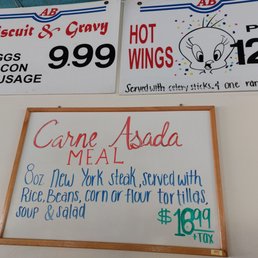 AB
iscuit & Gravy
GGS
CON
USAGE
9.99
AB
HOT
WINGS
P
12
Served with celery sticks & one ran
Carne Asada
MEAL
8oz New York steak, served with
Rice, Beans, corn or flour tortillas,
soup & salad
$16.99
+ TAX